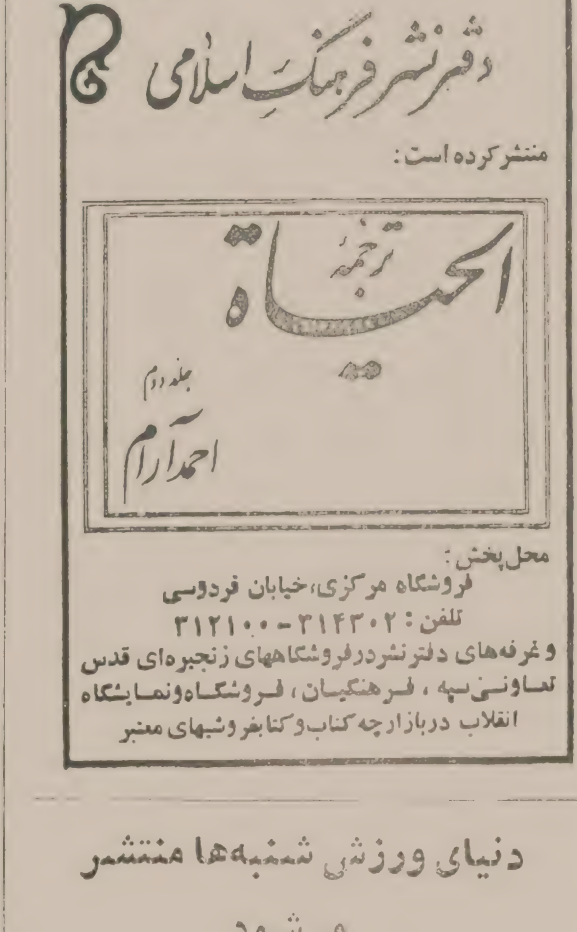 دفتر نشر فرهنگ اسلامی
منتشر کرده است:
ترجمهٔ
الحیاة
جلد دوم
احمد آرام
محل پخش:
فروشگاه مرکزی، خیابان فردوسی
تلفن: ۳۱۴۳۰۲ - ۳۱۲۱۰۰
و غرفه‌های دفتر نشر در فروشگاههای زنجیره‌ای قدس
تعاونی سپه ، فرهنگیان ، فروشگاه و نمایشگاه
انقلاب در بازارچه کتاب و کتابفروشیهای معتبر
دنیای ورزش شنبه‌ها منتشر
می‌شود